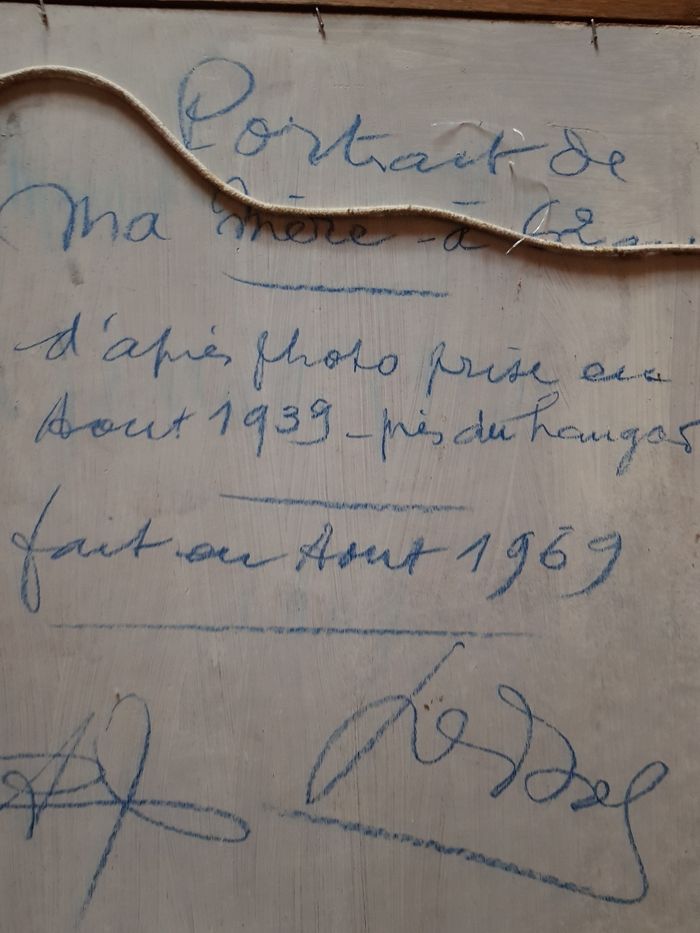 Portrait de
Ma Mère - à
d'après photo prise en
Aout 1939 - près du hangar
fait en Aout 1969